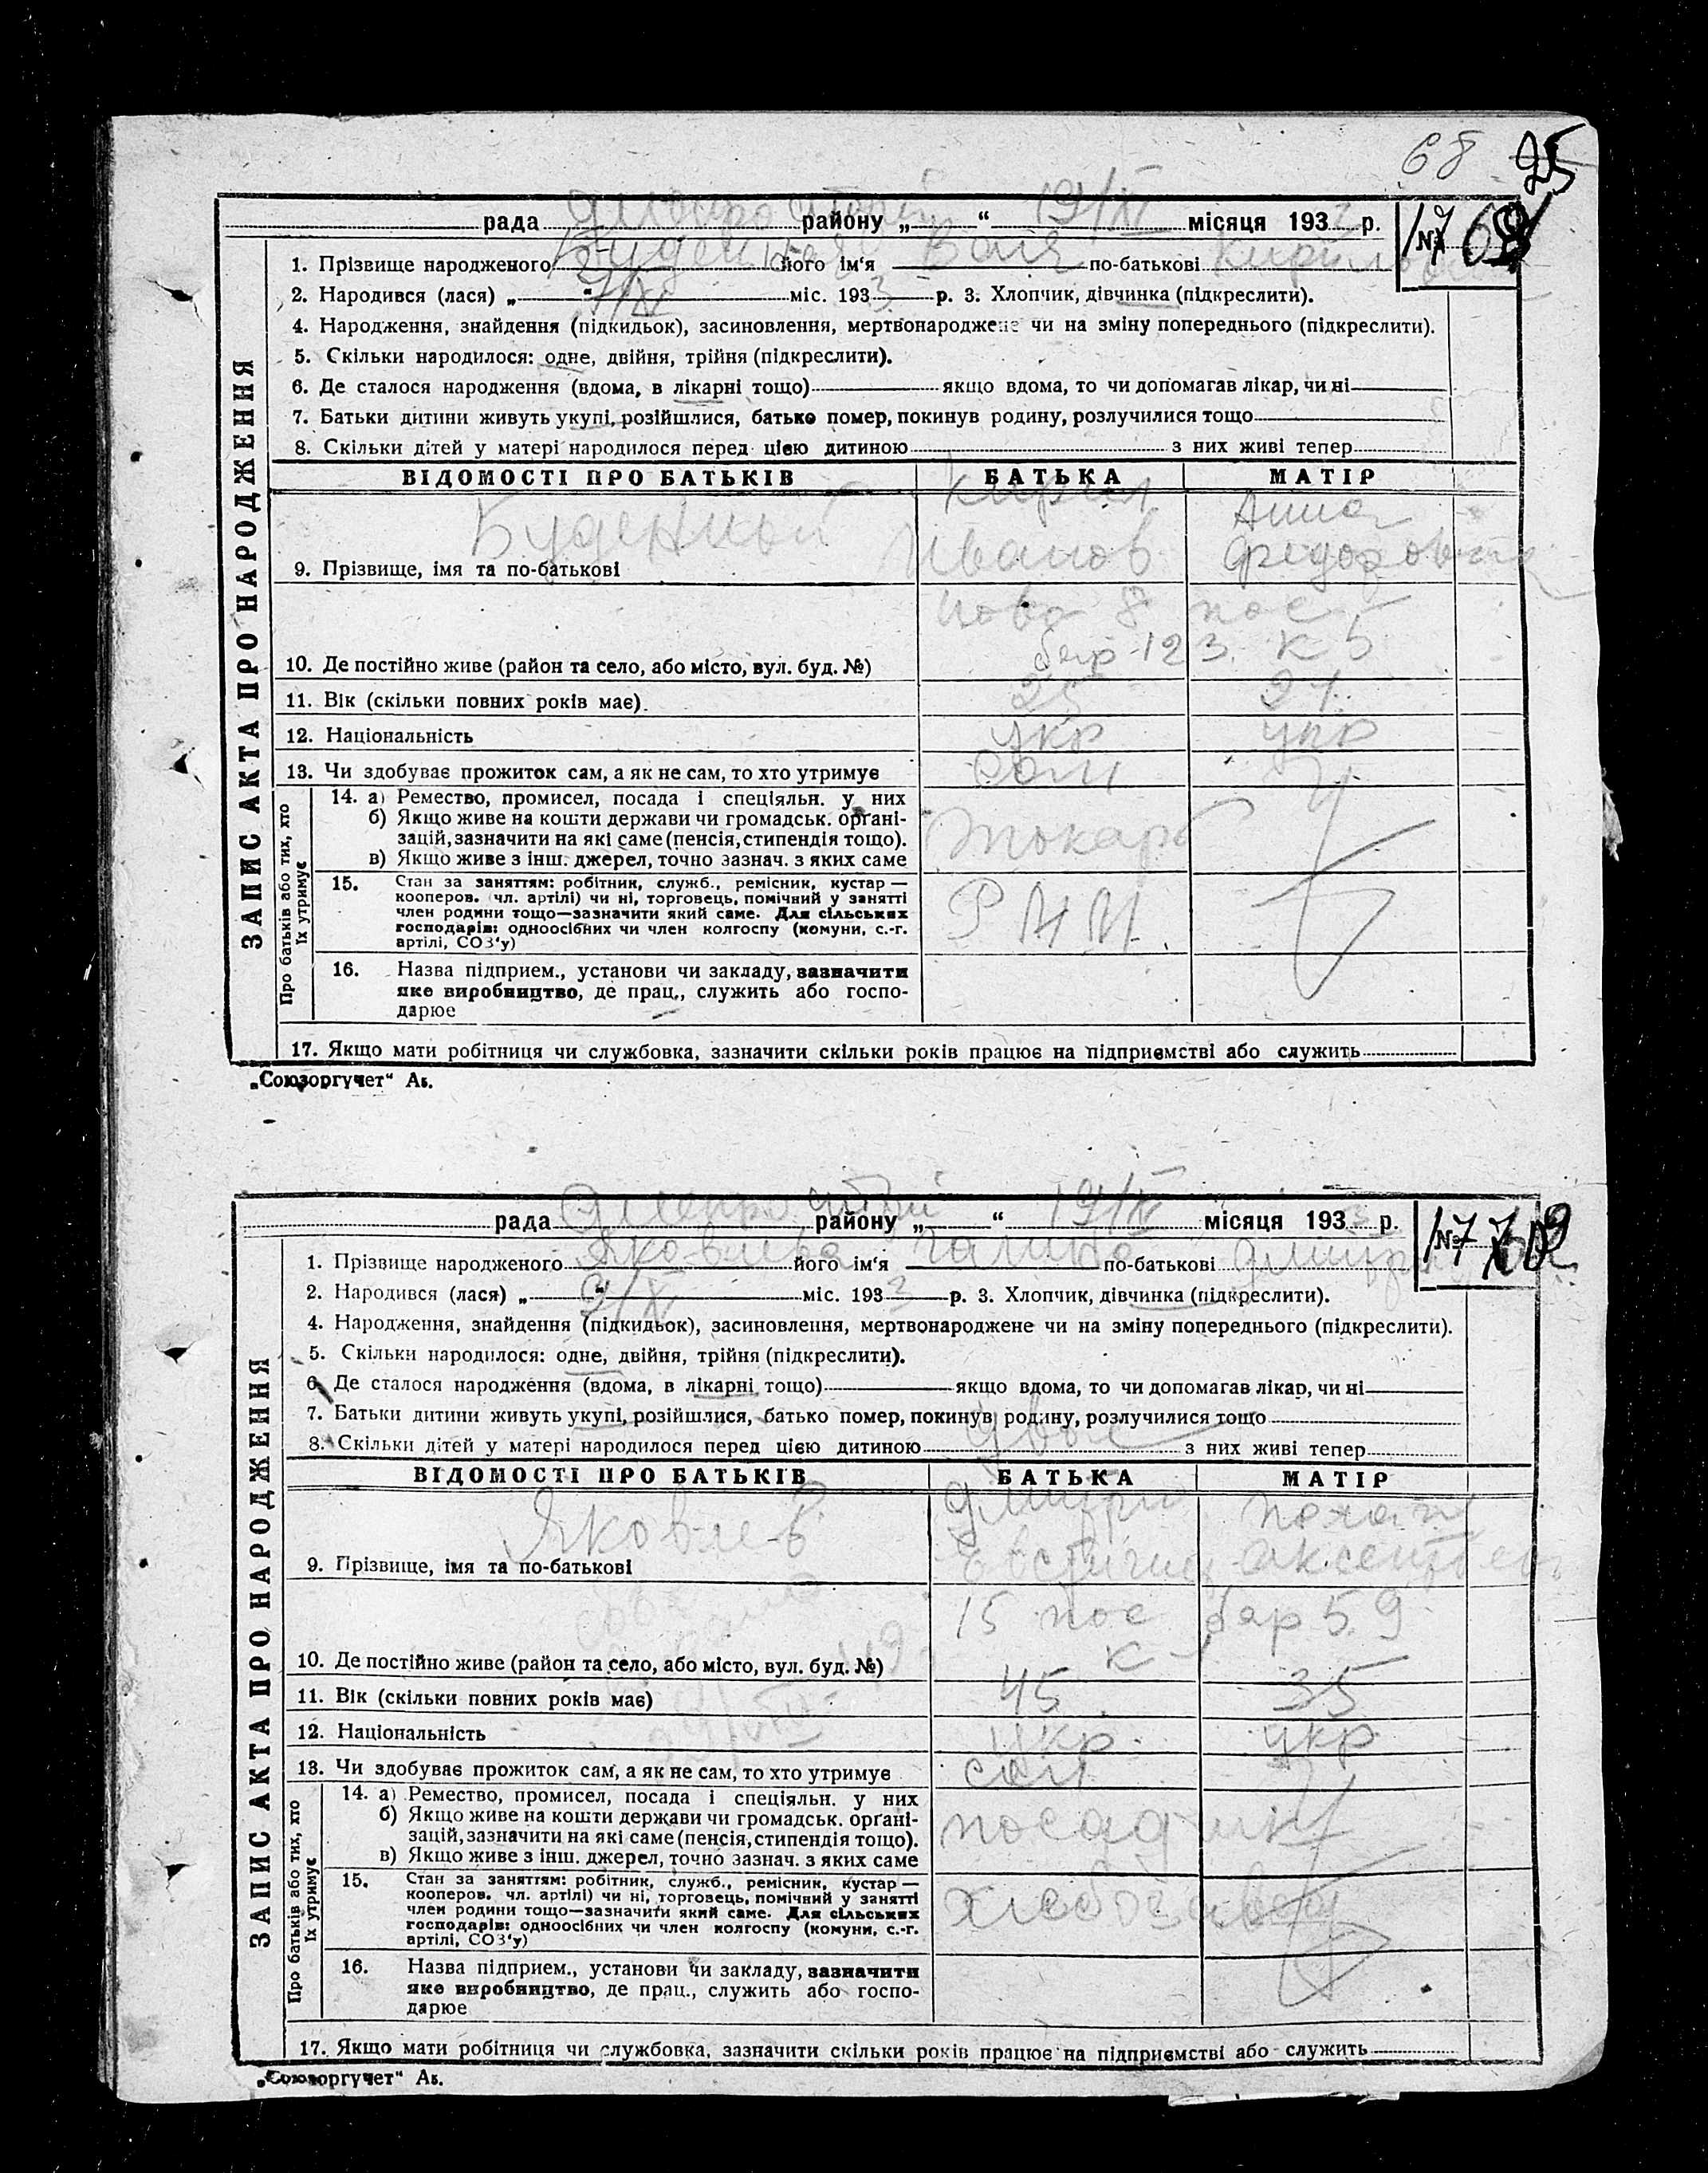 68 25
рада Дніпро району „ “ 19/XI місяця 193 р. №
1. Прізвище народженого його ім‘я Валя по-батькові
2. Народився (лася) „ 7/XI “ міс. 1933 р. 3. Хлопчик, дівчинка (підкреслити).
4. Народження, знайдення (підкидьок), засиновлення, мертвонароджене чи на зміну попереднього (підкреслити).
5. Скільки народилося: одне, двійня, трійня (підкреслити).
6. Де сталося народження (вдома, в лікарні тощо) якщо вдома, то чи допомагав лікар, чи ні
7. Батьки дитини живуть укупі, розійшлися, батько помер, покинув родину, розлучилися тощо
8. Скільки дітей у матері народилося перед цією дитиною з них живі тепер
ЗАПИС АКТА ПРО НАРОДЖЕННЯ
ВІДОМОСТІ ПРО БАТЬКІВ БАТЬКА МАТІР
Буденный Кирил Анна
Иванов Федоровна
9. Прізвище, імя та по-батькові
ново 8 пос
бар 123 к 5
10. Де постійно живе (район та село, або місто, вул. буд. №)
11. Вік (скільки повних років має). 25 21
12. Національність укр укр
13. Чи здобуває прожиток сам, а як не сам, то хто утримує сам
Про батьків або тих, хто їх утримує
14. а) Ремество, промисел, посада і спеціяльн. у них
б) Якщо живе на кошти держави чи громадськ. орґані-
зацій, зазначити на які саме (пенсія, стипендія тощо).
в) Якщо живе з інш. джерел, точно зазнач. з яких саме
токарь
15. Стан за заняттям: робітник, служб., ремісник, кустар —
кооперов. (чл. артілі) чи ні, торговець, помічний у занятті
член родини тощо—зазначити який саме. Для сільських
господарів: одноосібних чи член колгоспу (комуни, с.-г.
артілі, СОЗ‘у)
16. Назва підприєм., установи чи закладу, зазначити
яке виробництво, де прац., служить або госпо-
дарює
17. Якщо мати робітниця чи службовка, зазначити скільки років працює на підприємстві або служить
„Союзоргучет“ Аб.
рада Дніпро району „ “ 19/XI місяця 1933 р. №
1. Прізвище народженого Яковлева його ім‘я Галина по-батькові
2. Народився (лася) „ “ міс. 1933 р. 3. Хлопчик, дівчинка (підкреслити).
4. Народження, знайдення (підкидьок), засиновлення, мертвонароджене чи на зміну попереднього (підкреслити).
5. Скільки народилося: одне, двійня, трійня (підкреслити).
6. Де сталося народження (вдома, в лікарні тощо) якщо вдома, то чи допомагав лікар, чи ні
7. Батьки дитини живуть укупі, розійшлися, батько помер, покинув родину, розлучилися тощо
8. Скільки дітей у матері народилося перед цією дитиною двое з них живі тепер
ЗАПИС АКТА ПРО НАРОДЖЕННЯ
ВІДОМОСТІ ПРО БАТЬКІВ БАТЬКА МАТІР
Яковлев Дмитри
9. Прізвище, імя та по-батькові
15 пос бар 59
10. Де постійно живе (район та село, або місто, вул. буд. №)
11. Вік (скільки повних років має) 45 35
12. Національність укр. укр
13. Чи здобуває прожиток сам, а як не сам, то хто утримує сам
Про батьків або тих, хто їх утримує
14. а) Ремество, промисел, посада і спеціяльн. у них
б) Якщо живе на кошти держави чи громадськ. орґані-
зацій, зазначити на які саме (пенсія, стипендія тощо).
в) Якщо живе з інш. джерел, точно зазнач. з яких саме
15. Стан за заняттям: робітник, служб., ремісник, кустар —
кооперов. чл. артілі) чи ні, торговець, помічний у занятті
член родини тощо—зазначити який саме. Для сільських
господарів: одноосібних чи член колгоспу (комуни, с.-г.
артілі, СОЗ‘у)
хлебозавод
16. Назва підприєм., установи чи закладу, зазначити
яке виробництво, де прац., служить або госпо-
дарює
17. Якщо мати робітниця чи службовка, зазначити скільки років працює на підприємстві або служить
„Союзоргучет“ Аб.